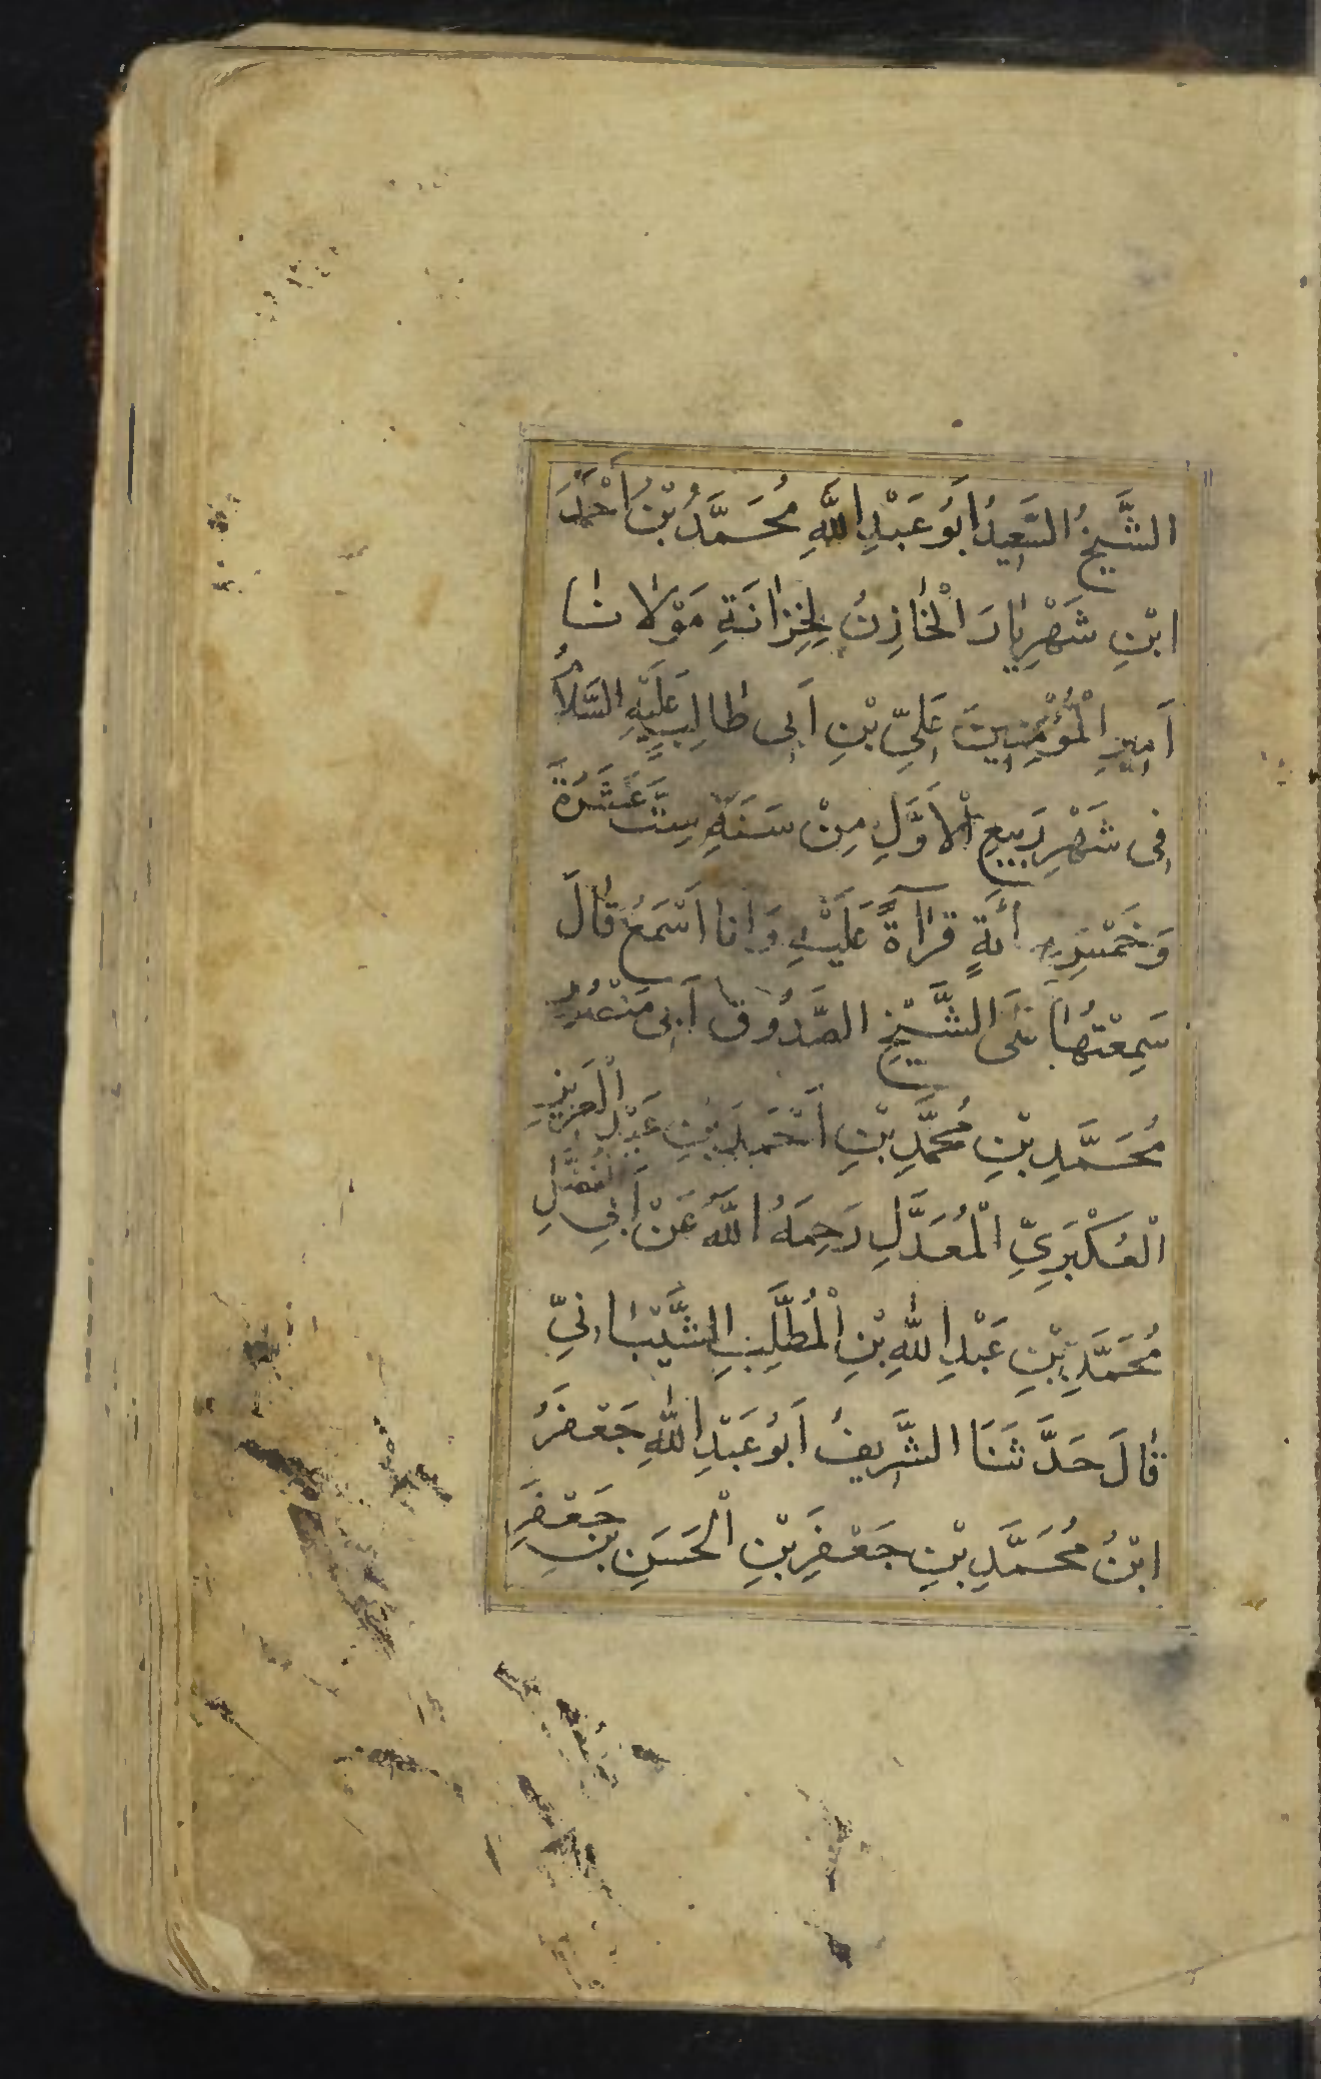 الشَّيْخُ السَّعِيدُ اَبُو عَبْدِ اللّٰهِ مُحَمَّدُ بْنُ اَحْمَدَ
ابْنِ شَهْرِيَارَ الْخَازِنُ لِخِزَانَةِ مَوْلَانَا
اَمِيرِ الْمُؤْمِنِينَ عَلِيِّ بْنِ اَبِى طَالِبٍ عَلَيْهِ السَّلَامُ
فِى شَهْرِ رَبِيعِ الْاَوَّلِ مِنْ سَنَةِ سِتَّ عَشَرَةَ
قِرَآءَةً عَلَيْهِ وَاَنَا اَسْمَعُ قَالَ
سَمِعْتُهَا الشَّيْخِ الصَّدُوقِ اَبِى
مُحَمَّدِ بْنِ مُحَمَّدِ بْنِ اَحْمَدَ بْنِ عَبْدِ الْعَزِيزِ
الْعُكْبَرِيِّ الْمُعَدَّلِ رَحِمَهُ اللّٰهُ عَنْ اَبِى
مُحَمَّدِ بْنِ عَبْدِ اللّٰهِ بْنِ الْمُطَّلِبِ الشَّيْبَانِيِّ
قَالَ حَدَّثَنَا الشَّرِيفُ اَبُو عَبْدِ اللّٰهِ جَعْفَرُ
ابْنُ مُحَمَّدِ بْنِ جَعْفَرِ بْنِ الْحَسَنِ بْنِ جَعْفَرِ